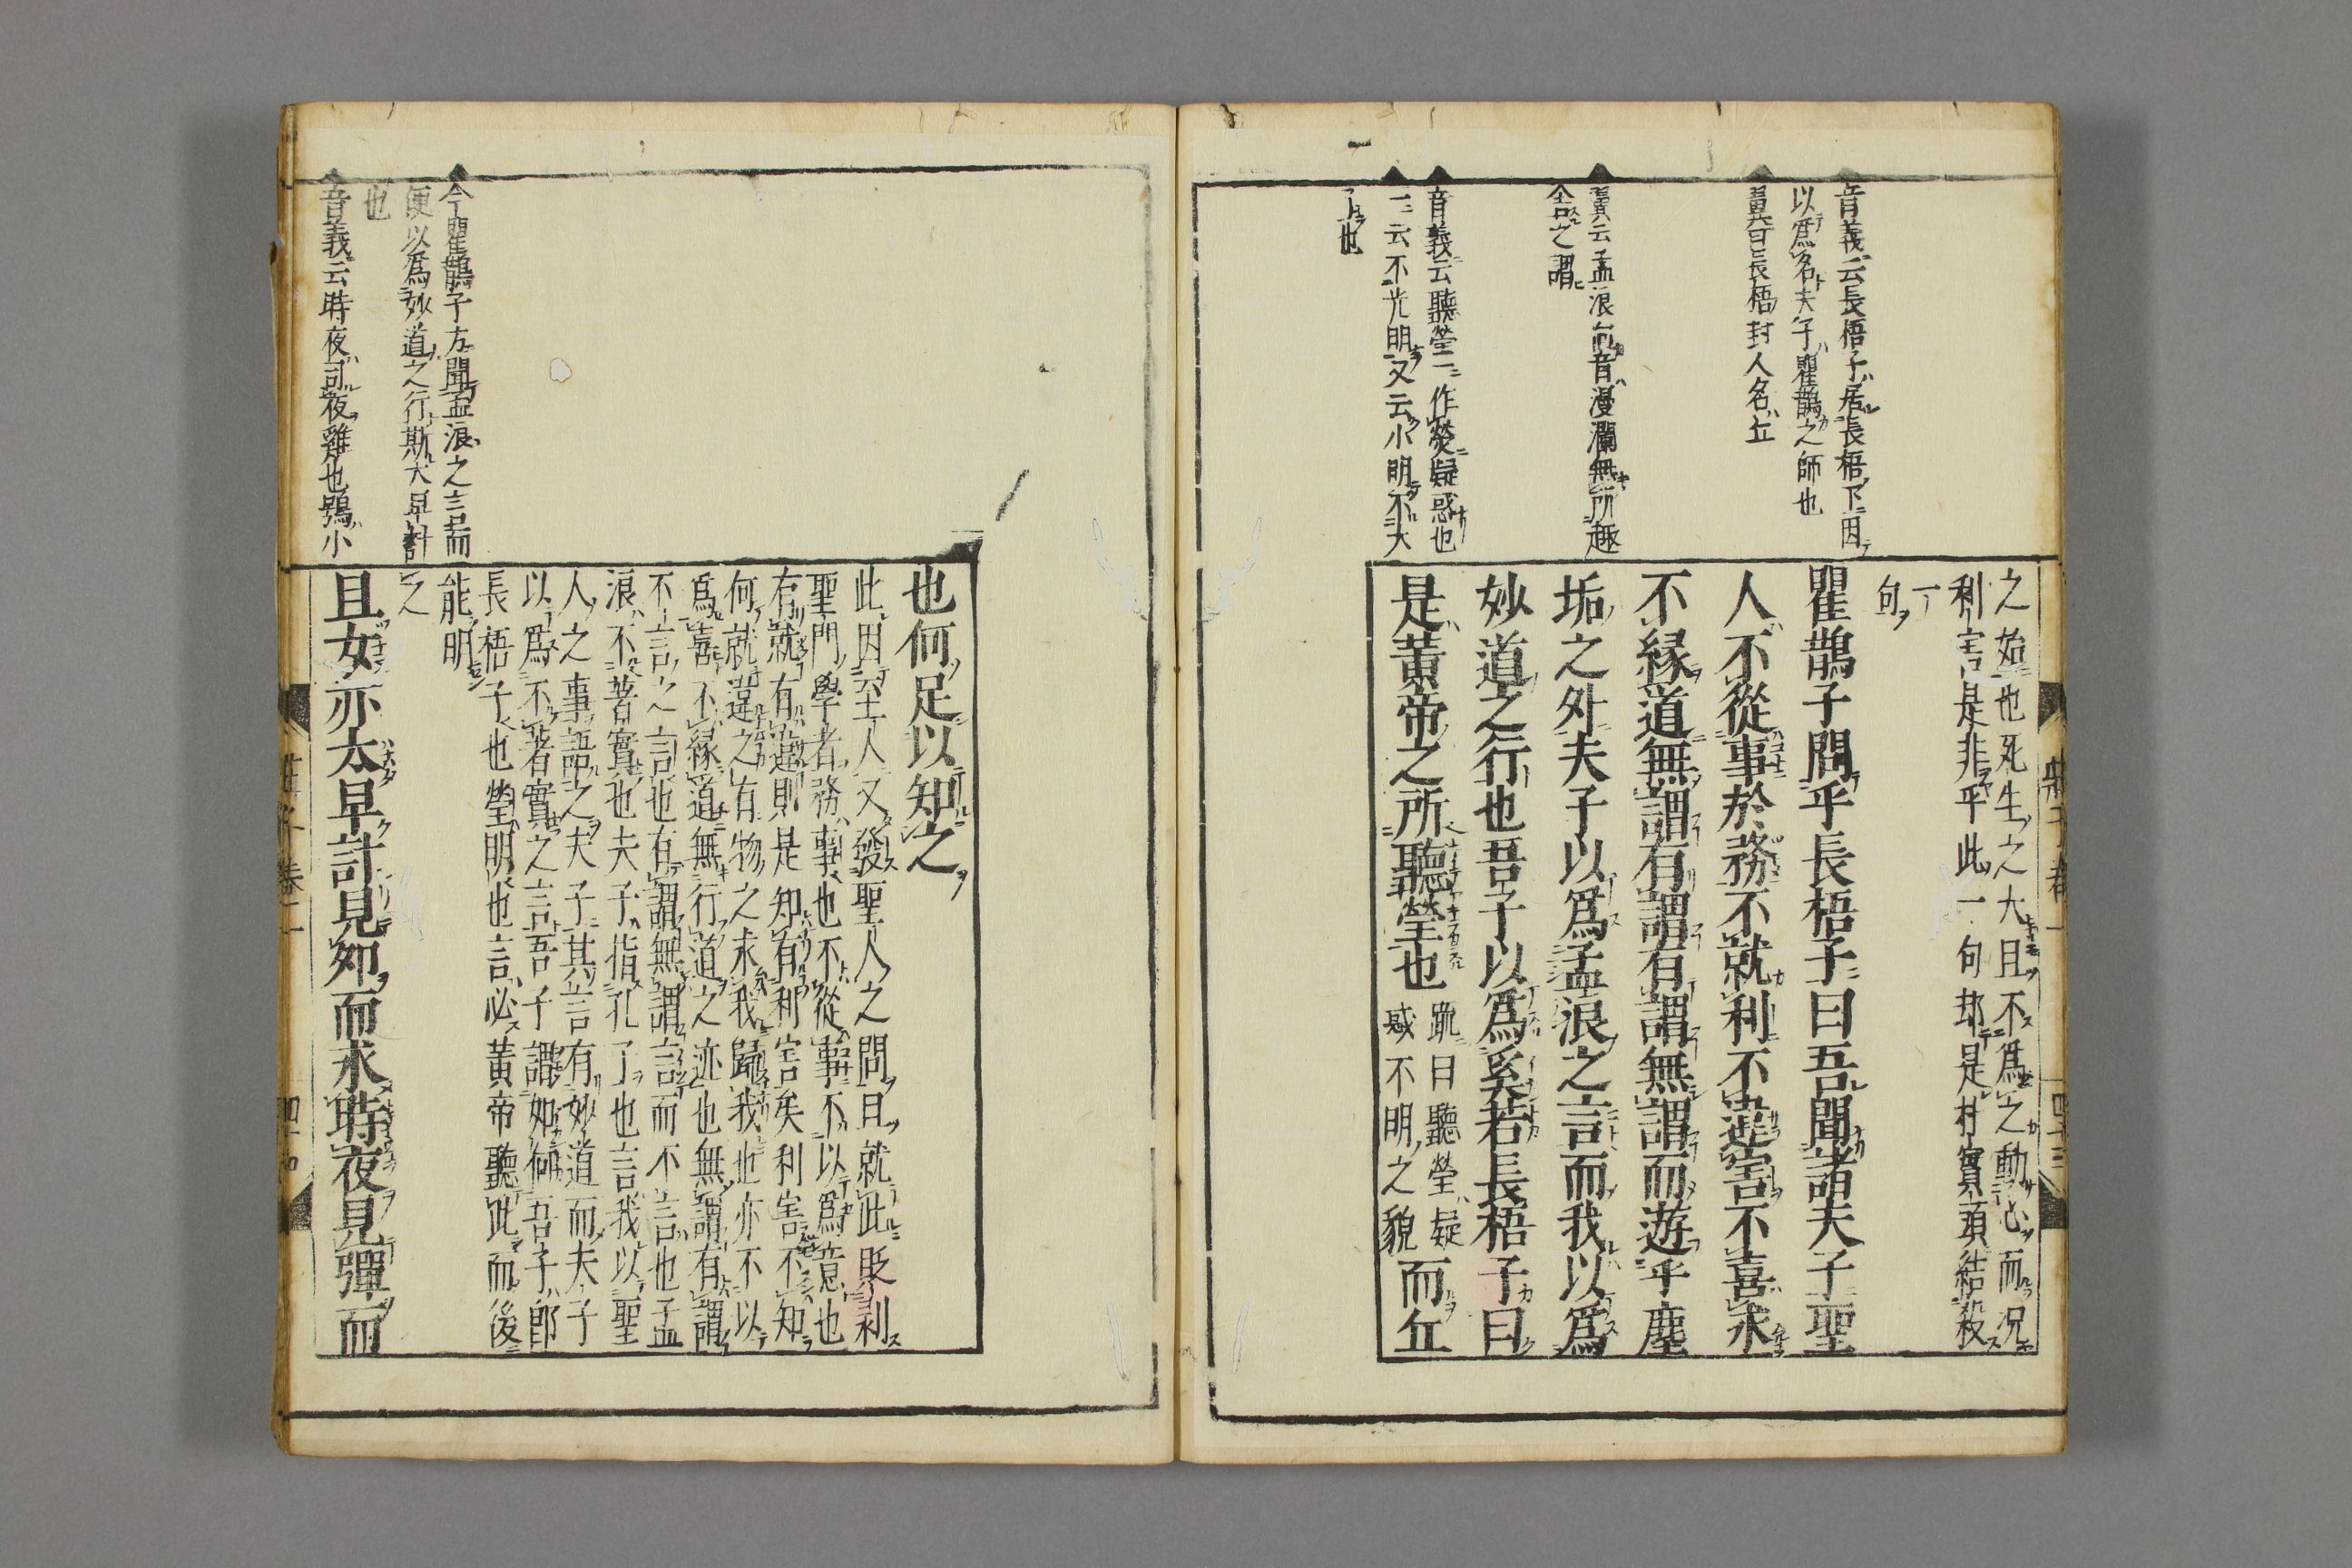 音義云長梧子居長梧下因
以爲名夫子瞿鵲之師也
翼曰長梧封人名丘
翼云孟浪向音漫瀾無所趣
舍之謂
音義云聽瑩一作熒疑惑也
云不光明又云小明不大
了也
之始也死生之大且不爲之動心而况
利害是非乎此一句却是村實頭結殺
一句
瞿鵲子問乎長梧子曰吾聞諸夫子聖
人不從事於務不就利不違害不喜求
不緣道無謂有謂有謂無謂而遊乎塵
垢之外夫子以爲孟浪之言而我以爲
妙道之行也吾子以爲奚若長梧子曰
是黃帝之所聽瑩也
䟽曰聽瑩疑
惑不明之貌
而丘
莊子卷
四十三
今瞿鵲子方聞孟浪之言而
便以爲妙道之行斯大早計
也
音義云時夜司夜雞也鴞小
也何足以知之
此因至人又發聖人之問且就此貶剥
聖門學者務事也不從事不以爲意也
有就有違則是知有利害矣利害不知
何就違之有物之求我歸我也亦不以
爲喜不緣道無行道之迹也無謂有謂
不言之言也有謂無謂言而不言也孟
浪不著實也夫子指孔子也言我以聖
人之事語之夫子其言有妙道而夫子
以爲不著實之言吾子謂如何吾子即
長梧子也瑩明也言必黃帝聽此而後
能明之
且女亦太早計見卵而求時夜見彈而
莊子卷二
四十四